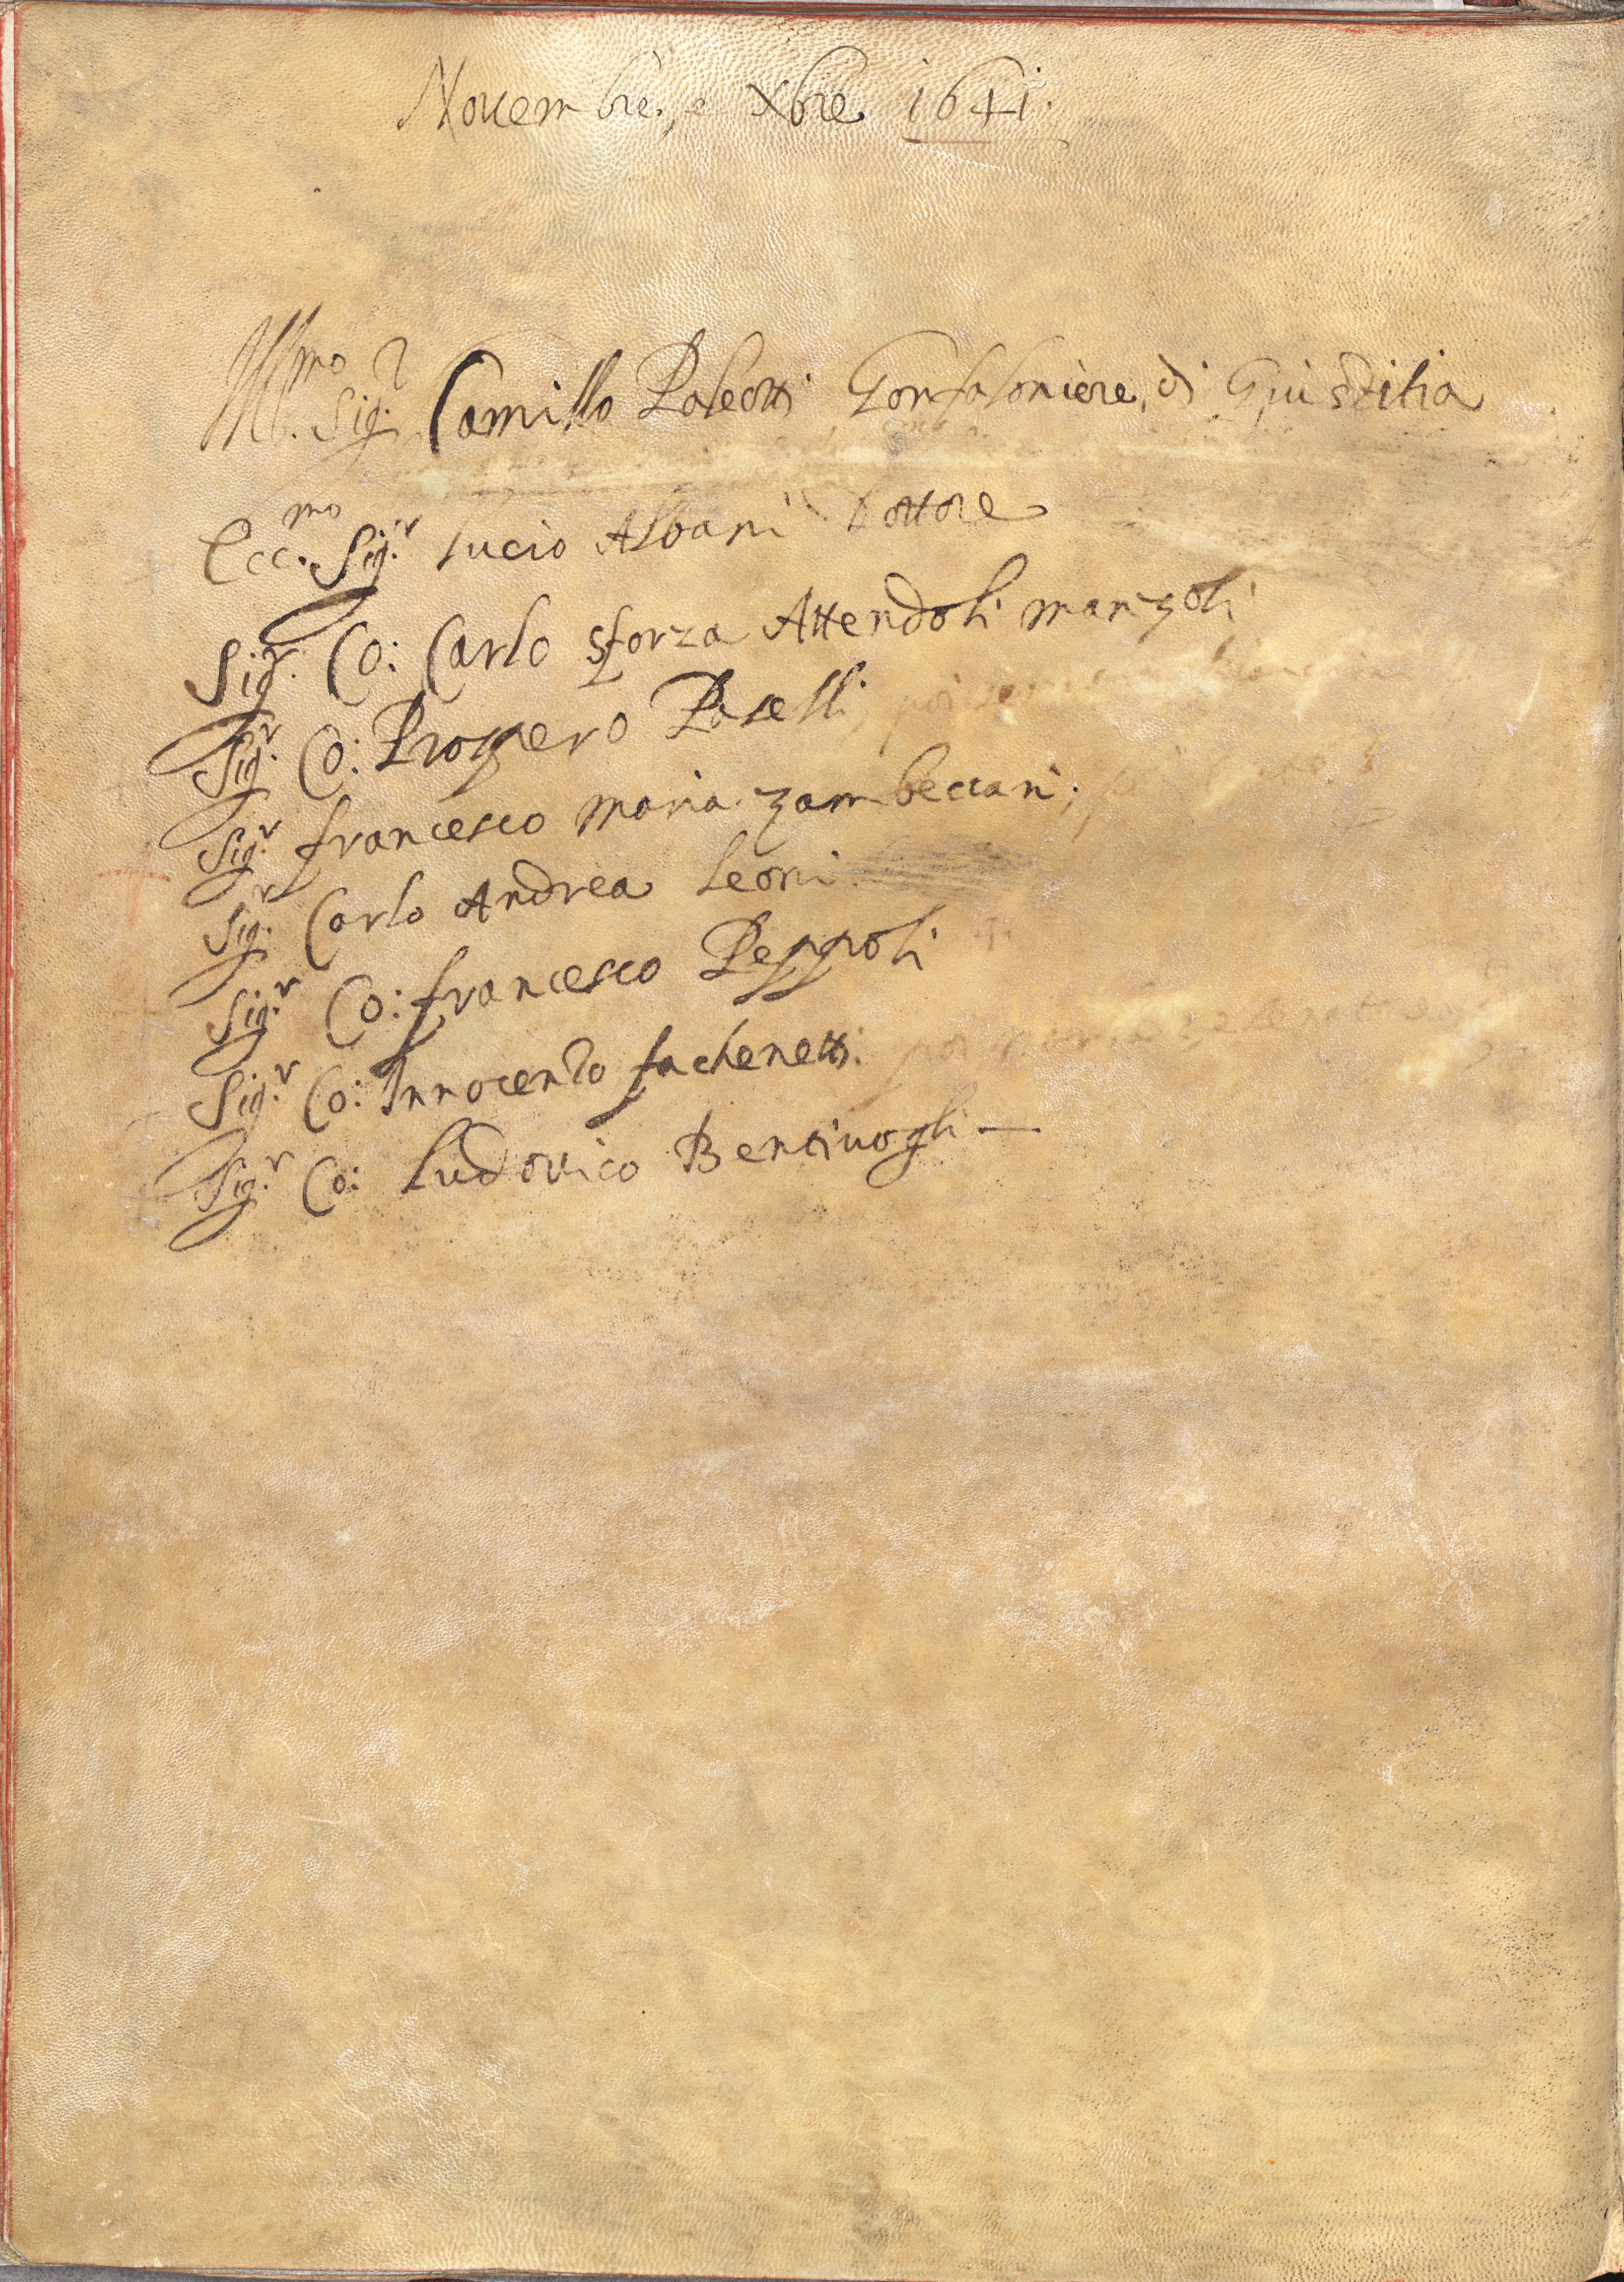 Nouembre, e Xbre 1641.
Ill.mo Sig.r Camillo Paleotti Gonfaloniere, di Giustitia
Ecc.mo Sig.r Lucio Albani Dottore
Sig.r Co: Carlo Sforza Attendoli Manzoli
Sig.r Co: Prospero Paselli
Sig.r Francesco Maria Zambeccari
Sig.r Carlo Andrea Leoni
Sig.r Co: Francesco Peppoli
Sig.r Co: Innocentio Fachenetti
Sig.r Co: Ludouico Bentiuogli —